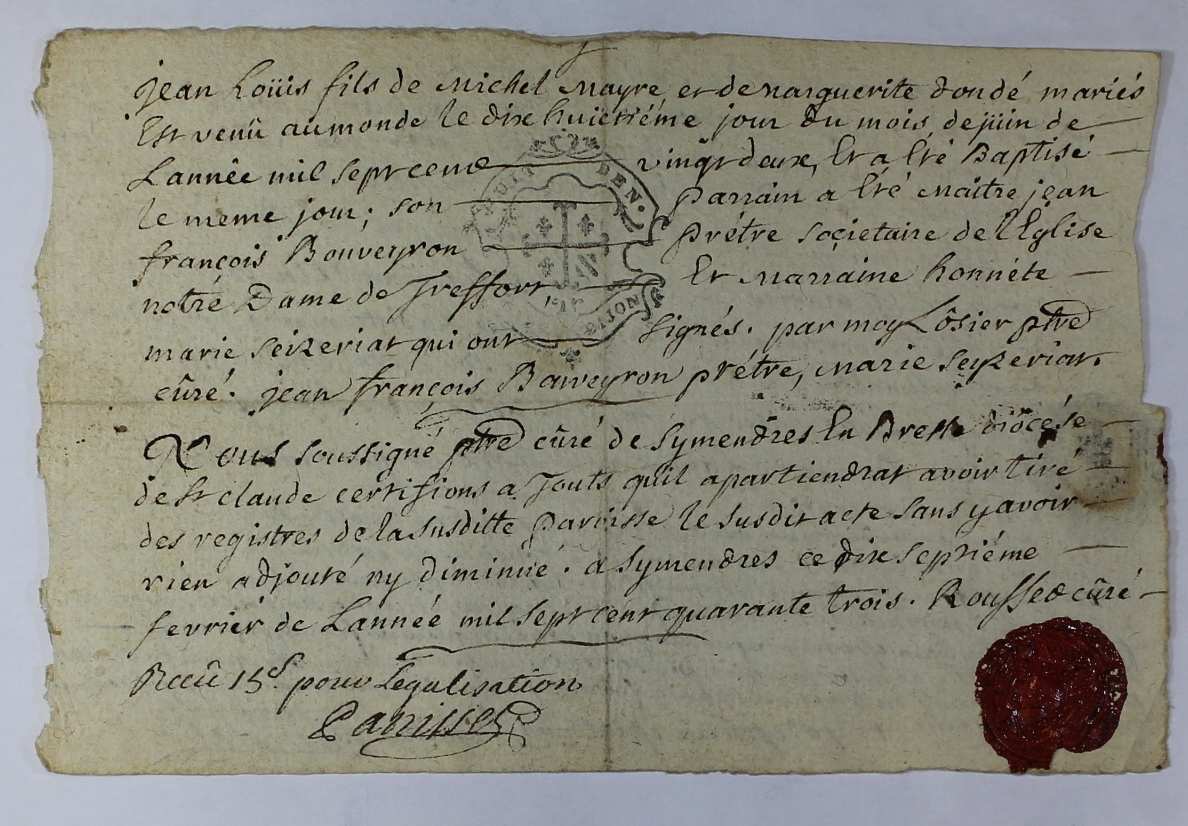 jean Loüis fils de Michel Mayre et de marguerite dondé mariés
Est venû au monde le dix huitiéme jour du mois de juin de
Lannêe mil sept cent vingt deux, Et a été Baptisé
le meme jour; son parrain a été maître jean
françois Bouveyron prétre soçietaire de l'Eglise
notre Dame de Treffort, Et marraine honnéte
marie seizeriat qui ont signés. par moy Lôsier ptre
cûré. jean françois Bouveyron prétre, marie seyzeriat.
Nous soussigné ptre cûré de symendres En Bresse diôcése
de st claude certifions a Touts qu'il apartiendrat avoir tiré
des registres de la susditte paroisse le susdit acte sans y avoir
rien adjouté ny diminüé. a symendres ce dix septiéme
fevrier de Lannée mil sept cent quarante trois. Rousset cûré
Receü 15s. pour Légalisation
Panisset